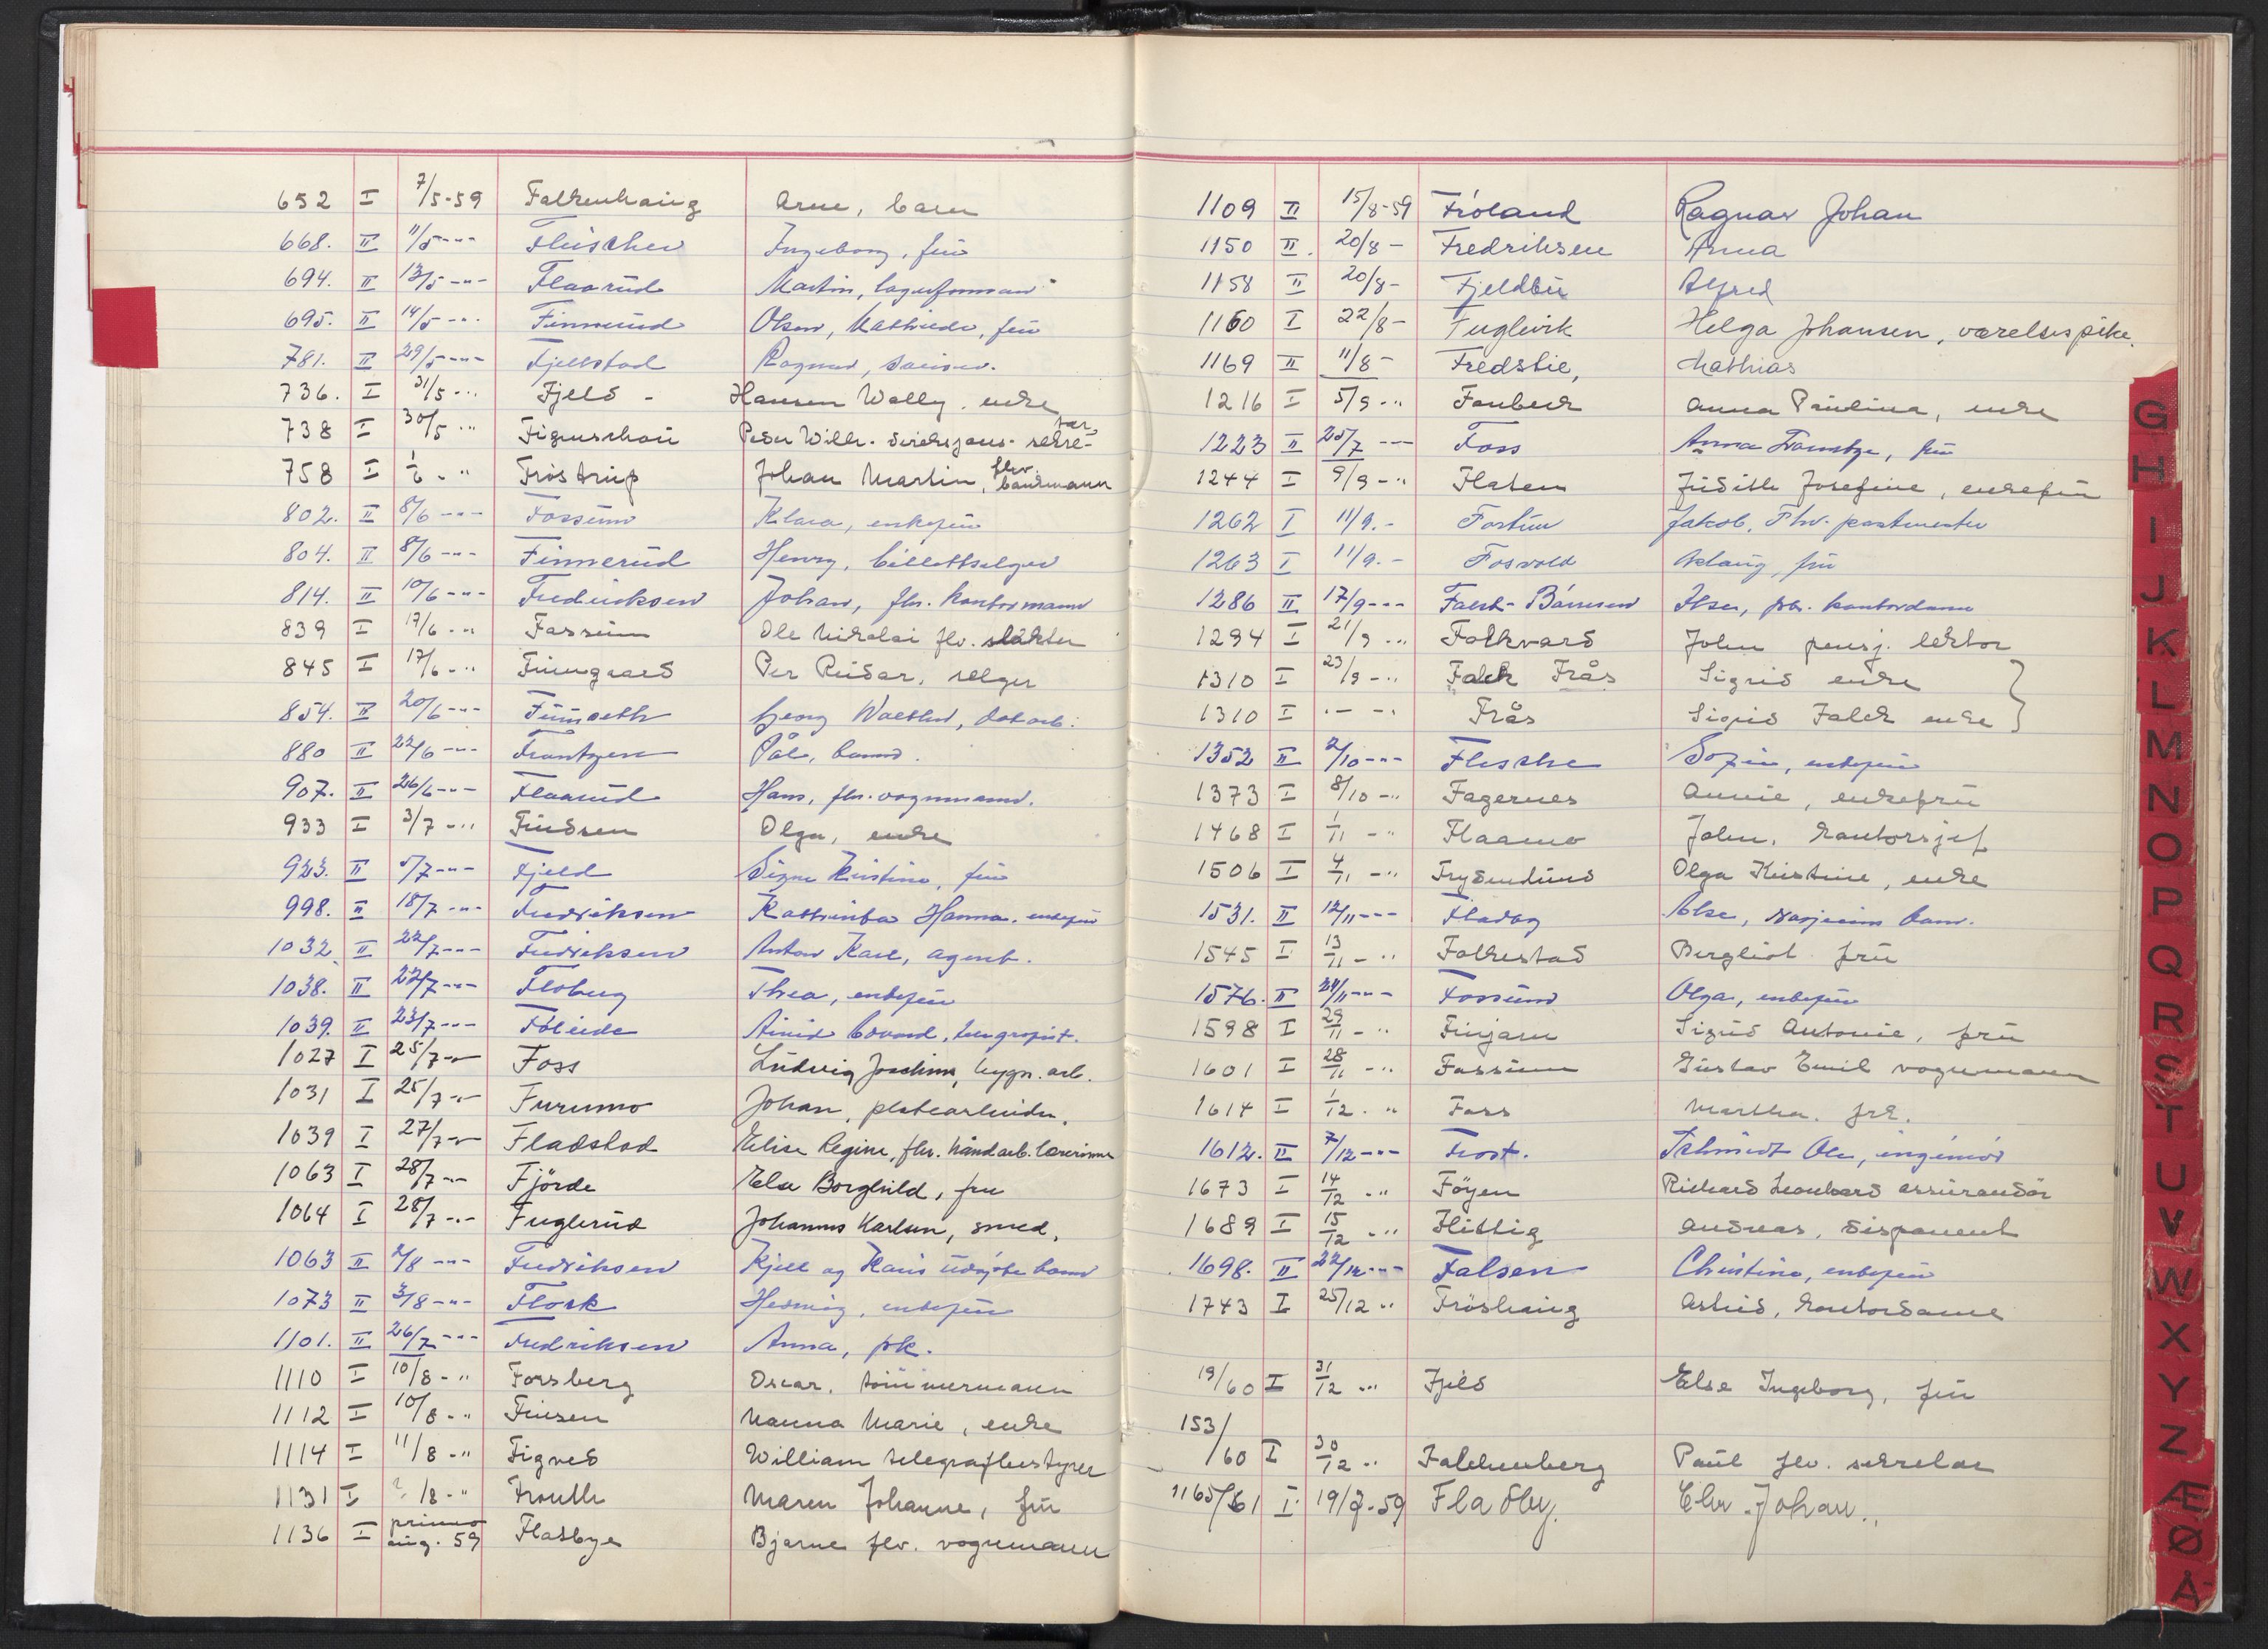 652 I 7/5-59 Falkenhaug Arne, barn
668. II 11/5 -"- Fleischer Ingeborg, frü
694. II 13/5 -"- Flaarüd Martin, lagerformann
695. II 14/5 -"- Finnerüd Olsen, frü
781. II 29/5 -"- Fjellstad Ragnar,
736. I 31/5 -"- Fjeld - Hansen Wally, enke
738 I 30/5 -"- Figenschoü Peder Wilh. direksjons-sekre-tær
758 I 1/6 -" Fröstrup Johan Martin, flv. bankmann
802. II 8/6 -"- Fossüm Klara, enkefrü
804. II 8/6 -"- Finnerüd Henry, billettselger
814. II 10/6 -"- Fredriksen Johan, fhv. kontormann
839 I 17/6 -" Fossüm Ole Nikolai flv. slakter
845 I 17/6 -" Per Reidar, selger
854. II 20/6 -"- Georg
880 II 22/6 -"- Frantzen Pål, barn.
907. II 26/6 -"- Flaarüd Hans, fhv. vognmann.
933 I 3/7 -" Olga, enke
923. II 5/7 -"- Fjeld Signe Kristine, frü
998. II 18/7 -"- Fredriksen Kathinka Hanna, enkefrü
1032. II 22/7 -"- Fredriksen Anton Karl, agent.
1038. II 22/7 -"- Floberg Thea, enkefrü
1039. II 23/7 -"-
1027 I 25/7 -"- Foss Lüdvig Joachim, bygn. arb.
1031 I 25/7 -"- Furumo Johan, platearbeider.
1039 I 27/7 -"- Fladstad Elise Regine, fhv. håndarb. lærerinne
1063 I 28/7 -"- Fjörde Ela Borghild, fru
1064 I 28/7 -"- Fuglerüd Johannes Karlsen, smed.
1063 II 2/8 -"- Fredriksen Kjell og Karis üdøpte barn
1073 II 3/8 -"- Flock Hedvig, enkefrü
1101. II 26/7 -"- Fredriksen Anna, pk.
1110 I 10/8 -" Forsberg Oscar, tömmermann
1112 I 10/8 -" Friisen Nanna Marie, enke
1114 I 11/8 -" Figved William telegrafbestyrer
1131 I ?/8 -" Maren Johanne, frü
1136 I primo aug. 59 Fladbye Bjarne flv. vognmann
1109 II 15/8-59 Fröland Ragnar Johan
1150 II. 20/8 - Fredriksen Anna
1158 II 20/8 - Fjeldbü Alfred
1160 I 22/8 - Fuglevik Helga Johansen, værelsespike.
1169 II 11/8 - Fredslie, Mathias
1216 I 5/9 -" Fonbeck Anna Paülina, enke
1223 II 25/7 -"- Foss Anna Frantze, frü
1244 I 9/9 -" Flaten Jüdith Josefine, enkefrü
1262 I 11/9. - Fortün Jakob, Fhv. postmester
1263 I 11/9. - Fosvold Aslaüg, frü
1286 II 17/9 -"- Falch-Bårnsen fhv. kontordame
1294 I 21/9 -" Folkvard John pensj. lektor
1310 I 23/9 -" Falck Frås Sigrid enke
1310 I -"- Frås Sigrid Falck enke
1352 II 2/10 -"- Flesche enkefrü
1373 I 8/10 -" Fagernes Annie, enkefrü
1468 I 1/11 -" Flaamo John, kontorsjef
1506 I 4/11 -" Frydenlünd Olga Kristine, enke
1531. II 12/11 -"- Fladby Else, barn.
1545 I 13/11 -" Folkestad Bergliot frü
1576. II 24/11 -"- Fossüm Olga, enkefrü
1598 I 29/11 -" Finjarn Sigrid Antonie, frü
1601 I 28/11 -" Fossüm Güstav Emil vognmann
1614 I 1/12 -" Foss Martha. frk.
1612. II 7/12 -"- Frost. Schmidt Ole, ingeniör
1673 I 14/12 -" Föyen Richard Leonhard assürandör
1689 I 15/12 -" Flittig Andreas, disponent
1698. II 22/12 -"- Falsen Christine, enkefrü
1743 I 25/12 " Fröshaüg Astrid, kontordame
19/60 I 31/12 -" Fjeld Else Ingeborg, frü
153/60 I 30/12 " Falckenberg Paül flv. sekretær
1165/61 I 19/7-59 Fladby. Chr. Johan.
G
H
I
J
K
L
M
N
O
P
Q
R
S
T
U
V
W
X
Y
Z
Æ
Ø
Å